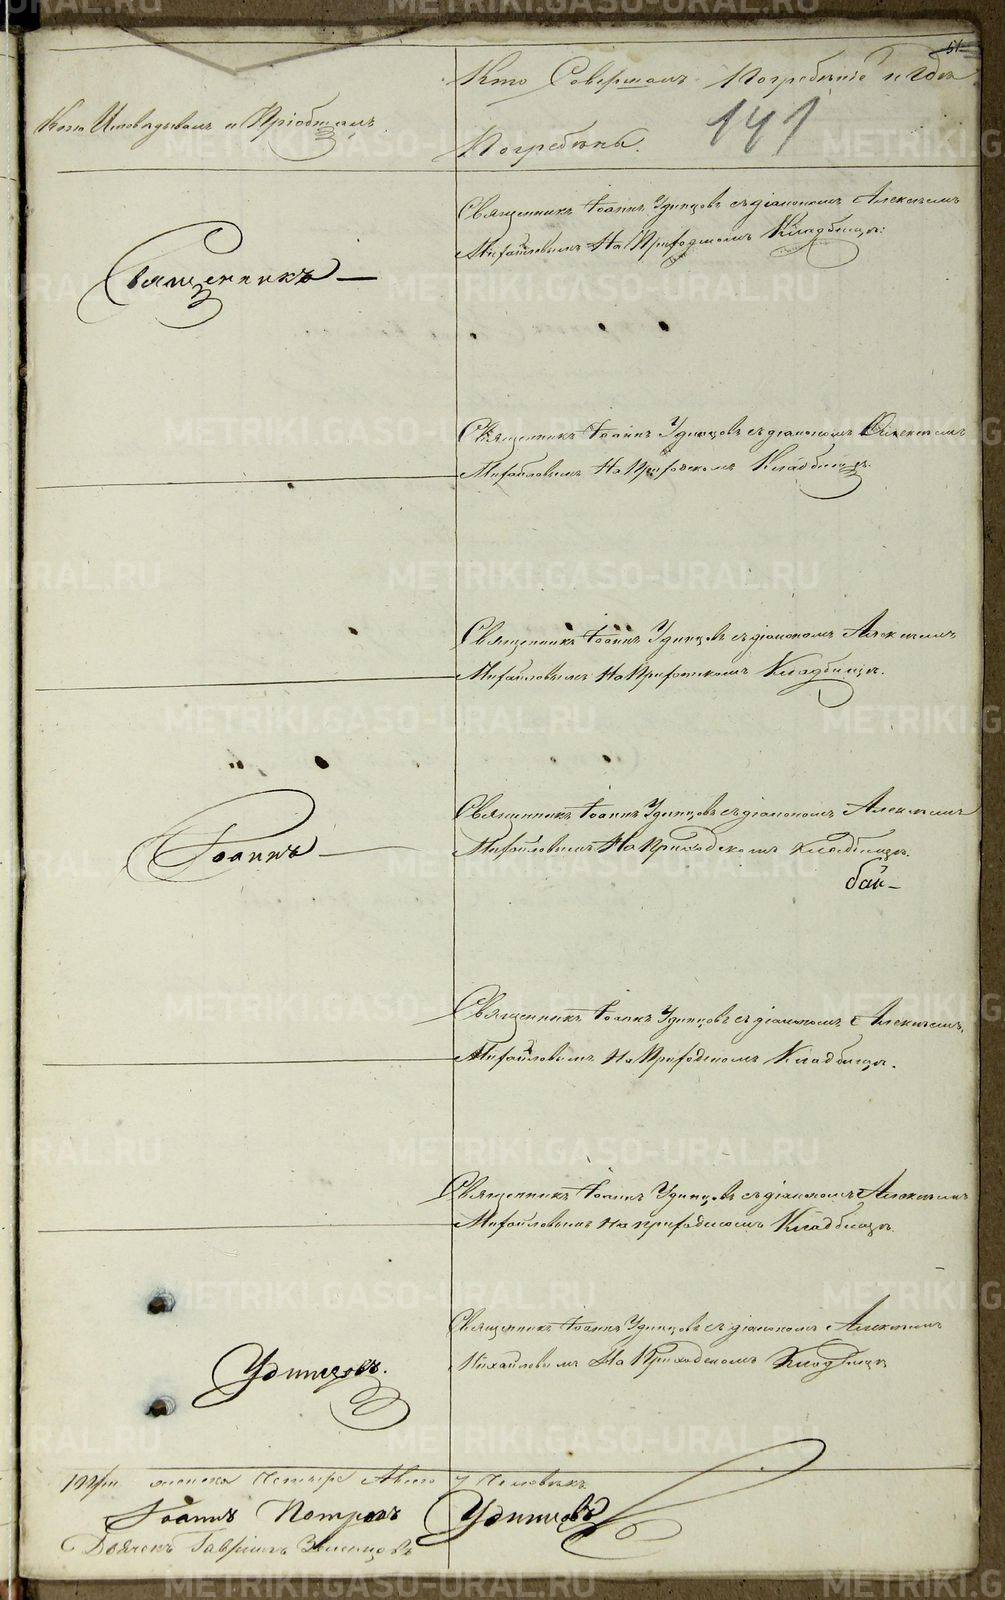 51
Кто Совершалъ Погребенiе и гдѣ
Кто Исповѣдывалъ и Прiобщалъ
141
Погребены.
Священникъ Iоаннъ Удинцовъ съ дiакономъ Алексѣемъ
Михайловымъ На Приходскомъ Кладбищѣ.
Священникъ
Священникъ Iоаннъ Удинцовъ съ дiакономъ Алексѣемъ
Михайловымъ На Приходскомъ Кладбищѣ.
Священникъ Iоаннъ Удинцовъ съ дiакономъ Алексѣемъ
Михайловымъ На Приходскомъ Кладбищѣ.
Священникъ Iоаннъ Удинцовъ съ дiакономъ Алексѣемъ
Iоаннъ
Михайловымъ На Приходскомъ кладбищѣ.
Священникъ Iоаннъ Удинцовъ съ дiакономъ Алексѣемъ
Михайловымъ На Приходскомъ Кладбищѣ.
Священникъ Iоаннъ Удинцовъ съ дiакономъ Алексѣемъ
Михайловымъ на приходскомъ Кладбищѣ.
Священникъ Iоаннъ Удинцовъ съ дiакономъ Алексѣемъ
Михайловымъ На Приходскомъ Кладбищѣ
Удинцовъ.
женска Четыре Всего 7 Человѣкъ
Iоаннъ Петровъ Удинцовъ
Дьячекъ Гаврiилъ
METRIKI.GASO-URAL.RU